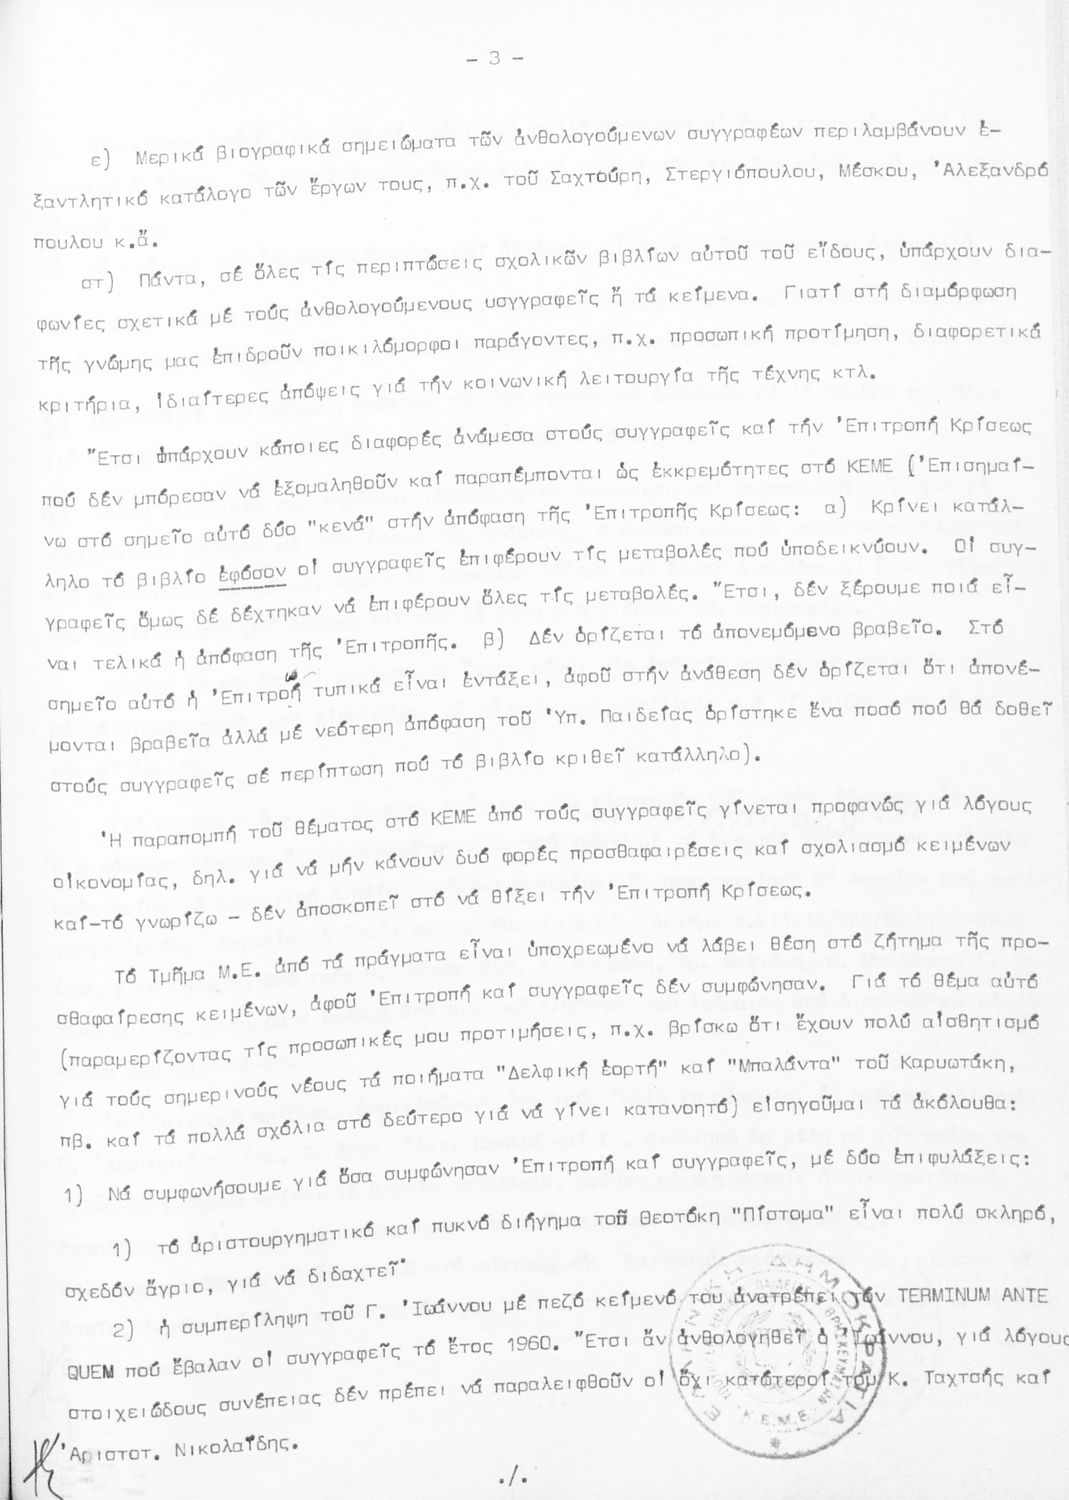 - 3 -
ε) Μερικά βιογραφικά σημειώματα τῶν ἀνθολογούμενων συγγραφέων περιλαμβάνουν ἐ-
ξαντλητικό κατάλογο τῶν ἔργων τους, π.χ. τοῦ Σαχτούρη, Στεργιόπουλου, Μέσκου, Ἀλεξανδρό
πουλου κ.ἄ.
στ) Πάντα, σέ ὅλες τίς περιπτώσεις σχολικῶν βιβλίων αὐτοῦ τοῦ εἴδους, ὑπάρχουν δια-
φωνίες σχετικά μέ τούς ἀνθολογούμενους υσγγραφεῖς ἤ τά κείμενα. Γιατί στή διαμόρφωση
τῆς γνώμης μας ἐπιδροῦν ποικιλόμορφοι παράγοντες, π.χ. προσωπική προτίμηση, διαφορετικά
κριτήρια, ἰδιαίτερες ἀπόψεις γιά τήν κοινωνική λειτουργία τῆς τέχνης κτλ.
Ἔτσι ὑπάρχουν κάποιες διαφορές ἀνάμεσα στούς συγγραφεῖς καί τήν Ἐπιτροπή Κρίσεως
πού δέν μπόρεσαν νά ἐξομαληθοῦν καί παραπέμπονται ὡς ἐκκρεμότητες στό ΚΕΜΕ (Ἐπισημαί-
νω στό σημεῖο αὐτό δύο "κενά" στήν ἀπόφαση τῆς Ἐπιτροπῆς Κρίσεως: α) Κρίνει κατάλ-
ληλο τό βιβλίο ἐφόσον οἱ συγγραφεῖς ἐπιφέρουν τίς μεταβολές πού ὑποδεικνύουν. Οἱ συγ-
γραφεῖς ὅμως δέ δέχτηκαν νά ἐπιφέρουν ὅλες τίς μεταβολές. Ἔτσι, δέν ξέρουμε ποιά εἶ-
ναι τελικά ἡ ἀπόφαση τῆς Ἐπιτροπῆς. β) Δέν ὁρίζεται τό ἀπονεμόμενο βραβεῖο. Στό
σημεῖο αὐτό ἡ Ἐπιτροή τυπικά εἶναι ἐντάξει, ἀφοῦ στήν ἀνάθεση δέν ὁρίζεται ὅτι ἀπονέ-
μονται βραβεῖα ἀλλά μέ νεότερη ἀπόφαση τοῦ Ὑπ. Παιδείας ὁρίστηκε ἕνα ποσό πού θά δοθεῖ
στούς συγγραφεῖς σέ περίπτωση πού τό βιβλίο κριθεῖ κατάλληλο).
Ἡ παραπομπή τοῦ θέματος στό ΚΕΜΕ ἀπό τούς συγγραφεῖς γίνεται προφανῶς γιά λόγους
οἰκονομίας, δηλ. γιά νά μήν κάνουν δυό φορές προσθαφαιρέσεις καί σχολιασμό κειμένων
καί-τό γνωρίζω - δέν ἀποσκοπεῖ στό νά θίξει τήν Ἐπιτροπή Κρίσεως.
Τό Τμῆμα Μ.Ε. ἀπό τά πράγματα εἶναι ὑποχρεωμένο νά λάβει θέση στό ζήτημα τῆς προ-
σθαφαίρεσης κειμένων, ἀφοῦ Ἐπιτροπή καί συγγραφεῖς δέν συμφώνησαν. Γιά τό θέμα αὐτό
(παραμερίζοντας τίς προσωπικές μου προτιμήσεις, π.χ. βρίσκω ὅτι ἔχουν πολύ αἰσθητισμό
γιά τούς σημερινούς νέους τά ποιήματα "Δελφική ἑορτή" καί "Μπαλάντα" τοῦ Καρυωτάκη,
πβ. καί τά πολλά σχόλια στό δεύτερο γιά νά γίνει κατανοητό) εἰσηγοῦμαι τά ἀκόλουθα:
1) Νά συμφωνήσουμε γιά ὅσα συμφώνησαν Ἐπιτροπή καί συγγραφεῖς, μέ δύο ἐπιφυλάξεις:
1) τό ἀριστουργηματικό καί πυκνό διήγημα τοῦ Θεοτόκη "Πίστομα" εἶναι πολύ σκληρό,
σχεδόν ἄγριο, γιά νά διδαχτεῖ·
2) ἡ συμπερίληψη τοῦ Γ. Ἰωάννου μέ πεζό κείμενό του ἀνατρέπει τόν TERMINUM ANTE
QUEM πού ἔβαλαν οἱ συγγραφεῖς τό ἔτος 1960. Ἔτσι ἄν ἀνθολογηθεῖ ὁ Ἰωάννου, γιά λόγους
στοιχειώδους συνέπειας δέν πρέπει νά παραλειφθοῦν οἱ ὄχι κατώτεροί του Κ. Ταχτσής καί
Ἀριστοτ. Νικολαΐδης.
./.
ΕΛΛΗΝΙΚΗ ΔΗΜΟΚΡΑΤΙΑ
Κ.Ε.Μ.Ε.